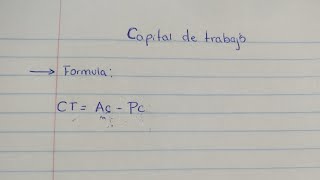 Capital de trabajo
→ Formula:
CT = Ac - Pc